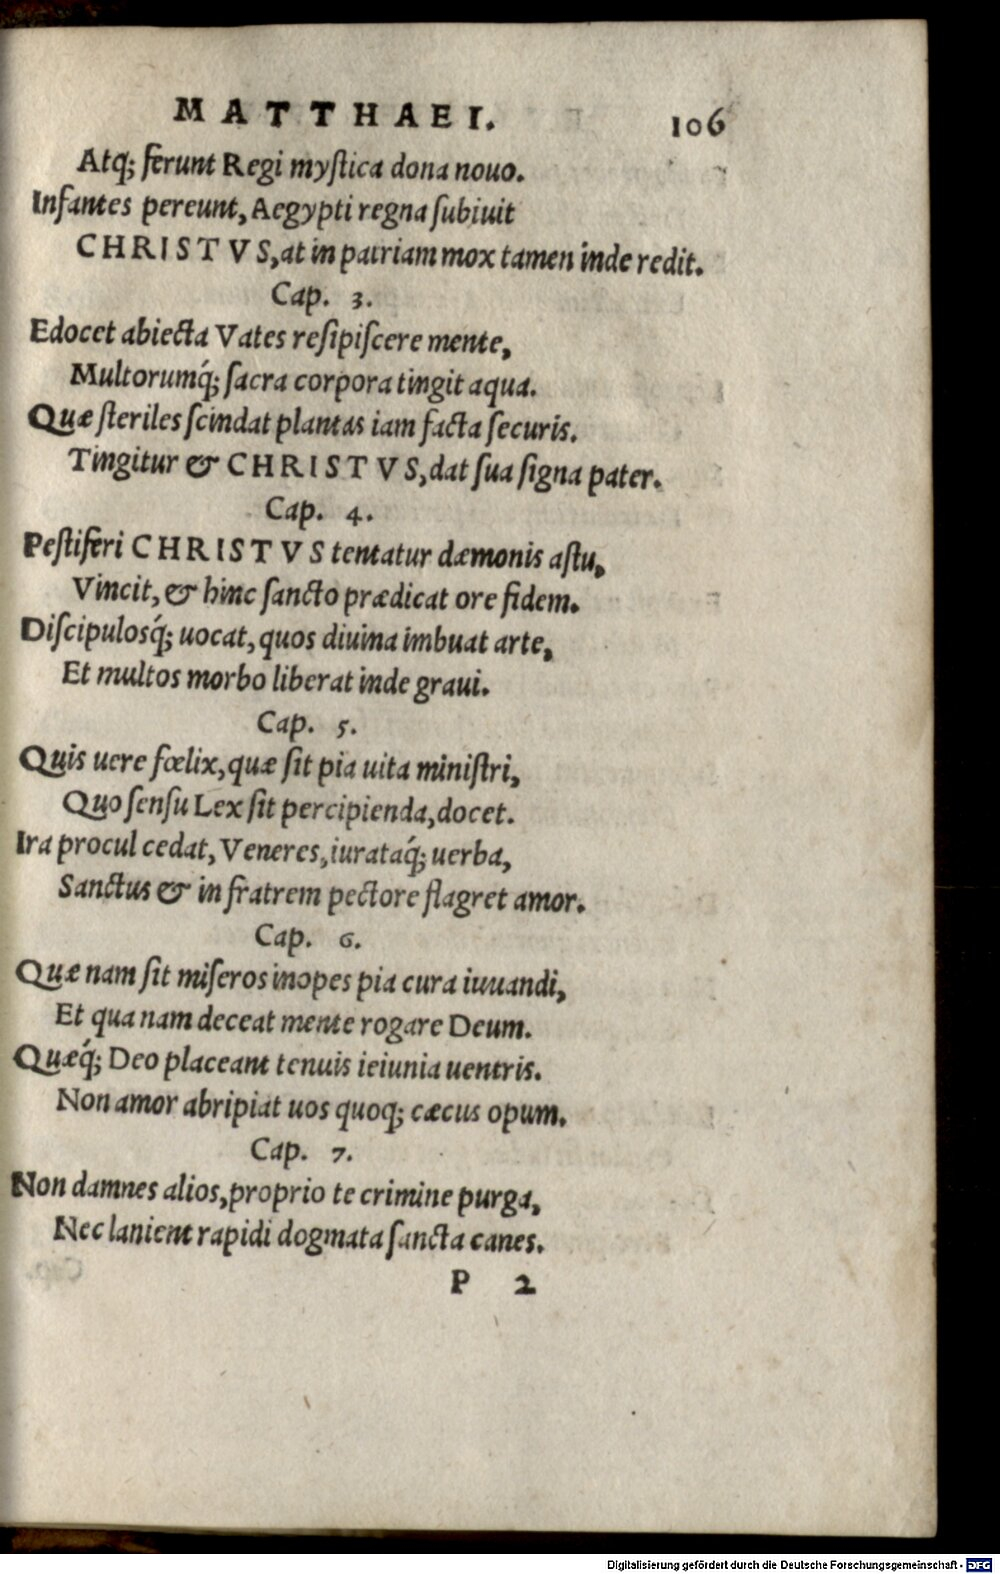 MATTHAEI. 106
Atq; ferunt Regi myſtica dona nouo.
Infantes pereunt, Aegypti regna ſubiuit
CHRISTVS, at in patriam mox tamen inde redit.
Cap. 3.
Edocet abiecta Vates reſipiſcere mente,
Multorumq́; ſacra corpora tingit aqua.
Quæ ſteriles ſcindat plantas iam facta ſecuris.
Tingitur & CHRISTVS, dat ſua ſigna pater.
Cap. 4.
Peſtiferi CHRISTVS tentatur dæmonis aſtu,
Vincit, & hinc ſancto prædicat ore fidem.
Diſcipulosq́; uocat, quos diuina imbuat arte,
Et multos morbo liberat inde graui.
Cap. 5.
Quis uere fœlix, quæ ſit pia uita miniſtri,
Quo ſenſu Lex ſit percipienda, docet.
Ira procul cedat, Veneres, iurataq́; uerba,
Sanctus & in fratrem pectore flagret amor.
Cap. 6.
Quæ nam ſit miſeros inopes pia cura iuuandi,
Et qua nam deceat mente rogare Deum.
Quæq́; Deo placeant tenuis ieiunia uentris.
Non amor abripiat uos quoq; cæcus opum.
Cap. 7.
Non damnes alios, proprio te crimine purga,
Nec lanient rapidi dogmata ſancta canes.
P 2
Digitalisierung gefördert durch die Deutsche Forschungsgemeinschaft - DFG